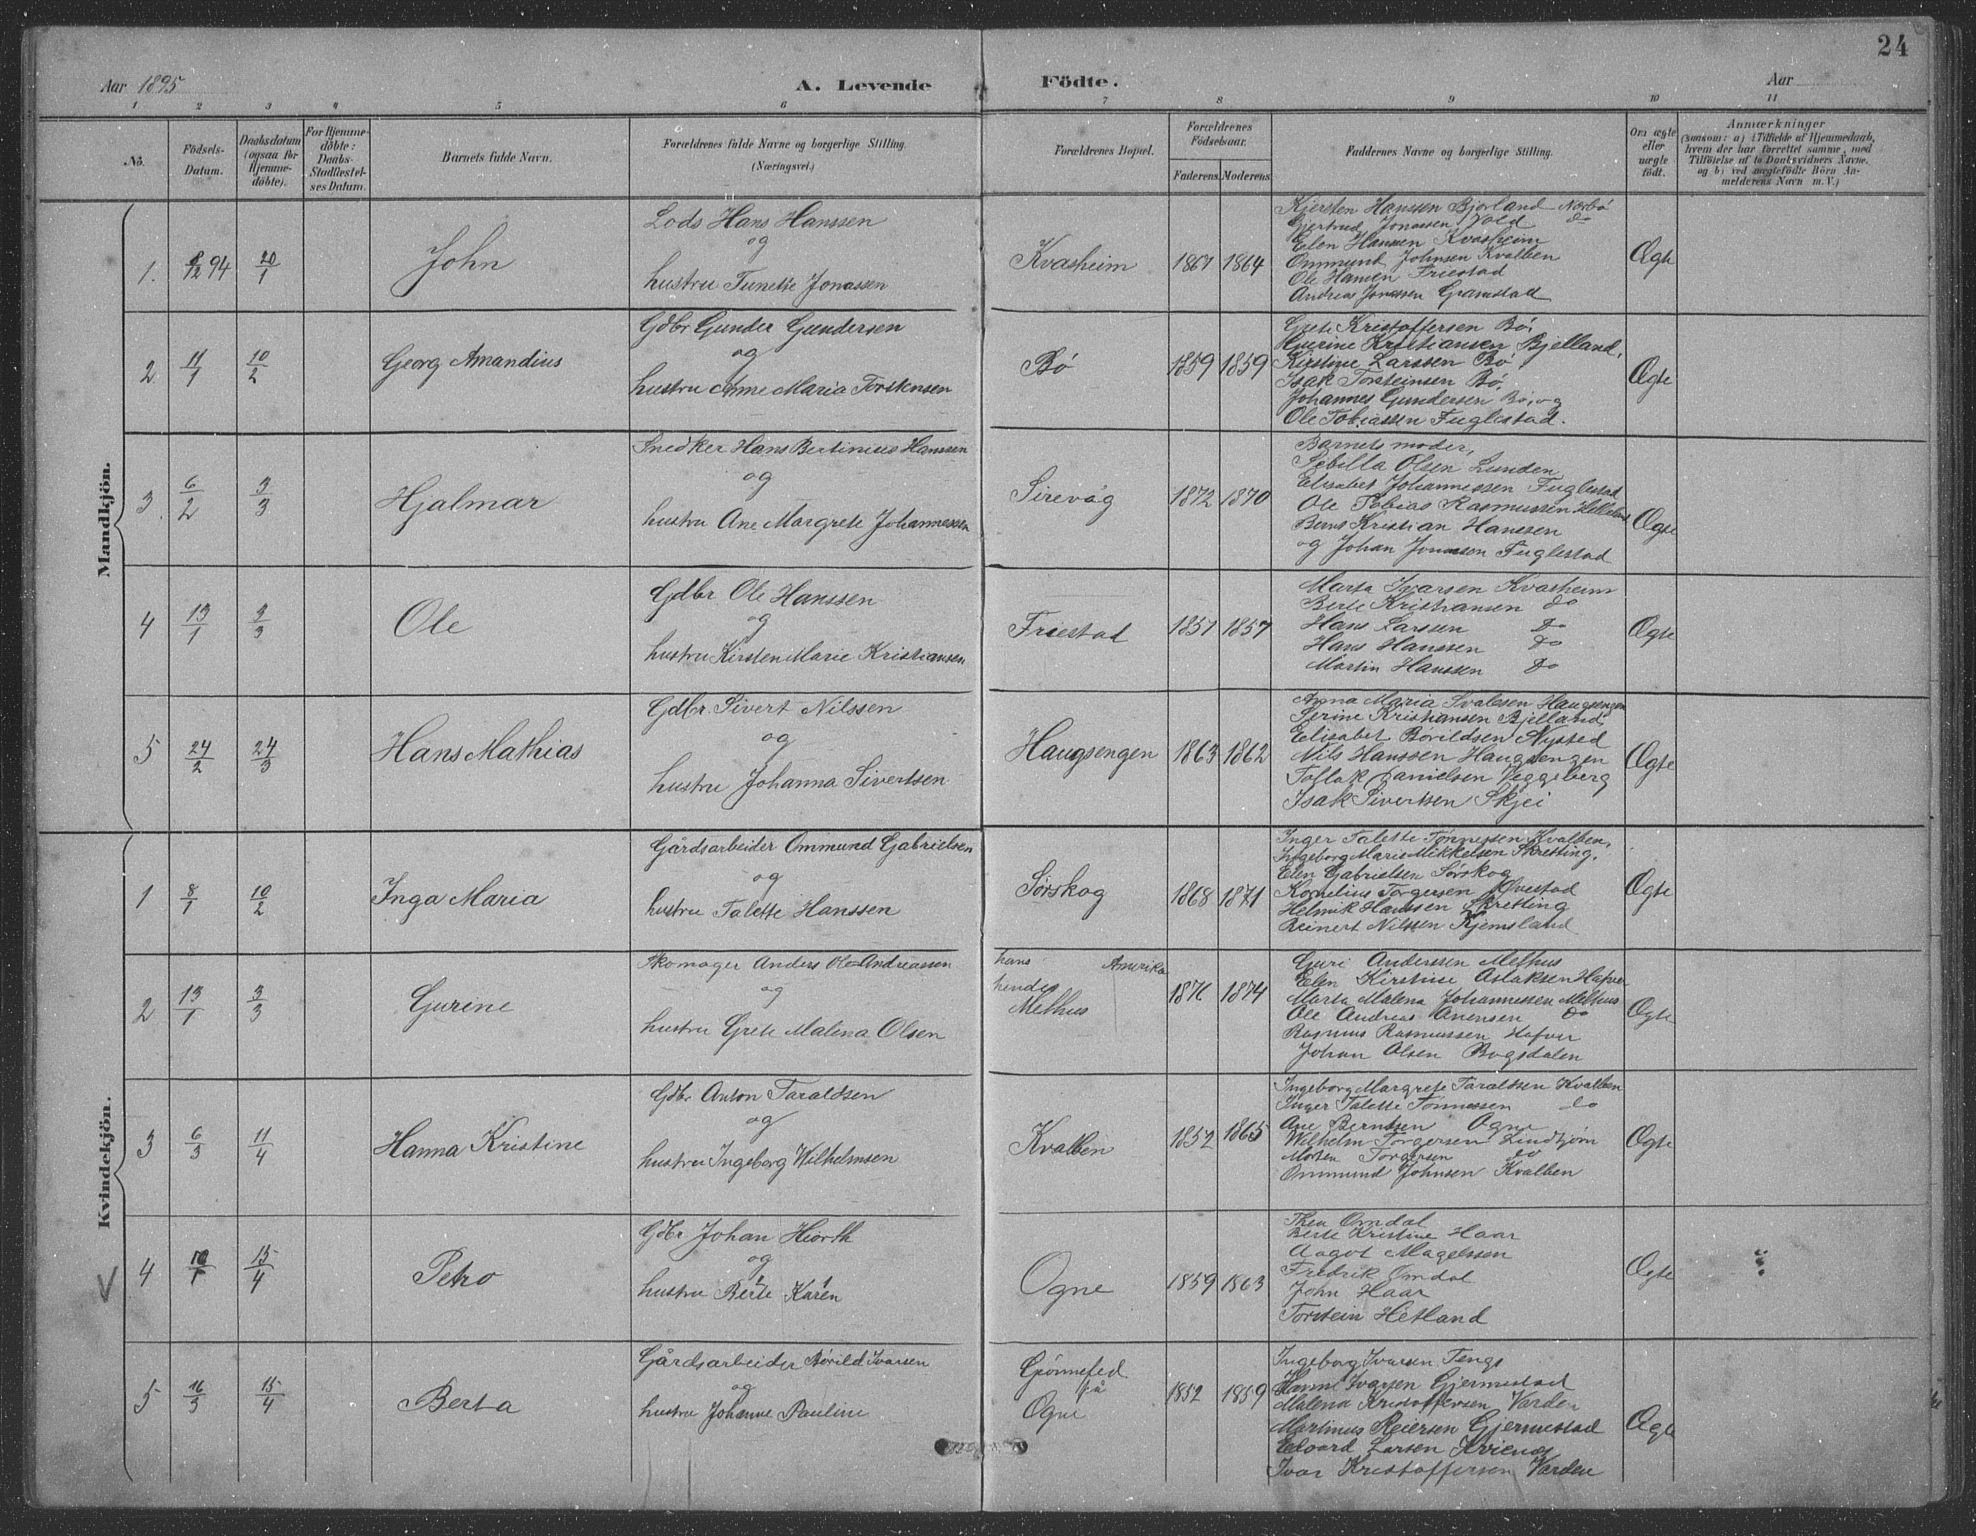 24
Aar 1895 A. Levende Födte. Aar
1 2 3 4 5 6 7 8 9 10 11
No.
Födsels-Datum.
Daabsdatum (ogsaa for Hjemme-döbte).
For Hjemme-döbte: Daabs-Stadfæstel-ses Datum.
Barnets fulde Navn.
Forældrenes fulde Navne og borgerlige Stilling. (Næringsvei.)
Forældrenes Bopæl.
Forældrenes Födselsaar.
Faderens. Moderens.
Faddernes Navne og borgerlige Stilling.
Om ægte eller uægte födt.
Anmærkninger
(saasom: a) i Tilfælde af Hjemmedaab,
hvem der har forrettet samme, med
Tilföielse af to Daabsvidners Navne,
og b) ved uægtefödte Börn An-
melderens Navn m. V.)
Mandkjön.
1. 8/12 94 20/1 John
Lods Hans Hanssen
og
hustru Tunette Jonassen
Kvasheim 1867 1864
Kjersten Hanssen Bjorland Nærbø
Gjertrud Jonassen Vold do
Elen Hanssen Kvasheim
Ommund Johnsen Kvalben
Ole Hansen Friestad
Andreas Jonassen Gramstad
Ægte
2 11/1 10/2 Georg Amandius
Gdbr Gunder Gundersen
og
hustru Anne Maria Torstensen
Bø 1859 1859
Grete Kristoffersen Bø,
Gurine Kristiansen Bjelland,
Kirstine Larssen Bø
Isak Torsteinsen Bø,
Johannes Gundersen Bø, og
Ole Tobiassen Fuglestad.
Ægte
3 6/2 3/3 Hjalmar
Snedker Hans Bertinius Hanssen
og
hustru Ane Margrete Johannessen
Sirevåg 1872 1870
Barnets moder,
Sebilla Olsen Lunden
Elisabet Johannessen Fuglestad
Ole Tobias Rasmussen Helleland
Berns Kristian Hanssen
og Johan Jonassen Fuglestad
Ægte
4 13/1 3/3 Ole
Gdbr Ole Hanssen
og
hustru Kirsten Marie Kristiansen
Friestad 1857 1857
Marta Ivarsen Kvasheim
Berte Kristiansen do
Hans Larssen do
Hans Hanssen do
Martin Hanssen do
Ægte
5 24/2 24/3 Hans Mathias
Gdbr. Sivert Nilssen
og
hustru Johanna Sivertsen
Haugsengen 1863 1862
Anna Maria Svalesen Haugsengen
Serine Kristiansen Bjelland
Elisabet Borildsen Nysted
Nils Hanssen Haugsengen
Tollak Danielsen Veggeberg
Isak Sivertsen Skjei
Ægte
Kvindekjön.
1 8/1 10/2 Inga Maria
Gårdsarbeider Ommund Gabrielsen
og
hustru Talette Hanssen
Sørskog 1868 1871
Inger Talette Tønnessen Kvalben,
Ingeborg Marie Mikkelsen Skretting,
Elen Gabrielsen Sørskog
Kornelius Torgersen Øvestad
Helmik Hanssen Skretting
Reinert Nilssen Kjemsland
Ægte
2 13/1 3/3 Gurine
Skomager Anders Ole Andreassen
og
hustru Grete Malena Olsen
hans Amerika
hendes
Melhus 1871 1874
Guri Anderssen Melhus
Elen Kirstine Aslaksen Hafver
Marta Malena Johannessen Melhus
Ole Andreas Anensen do
Rasmus Rasmussen Hafver
Johan Olsen Bogsdalen
Ægte
3 6/3 11/4 Hanna Kristine
Gdbr Anton Taraldsen
og
hustru Ingeborg Wilhelmsen
Kvalben 1852 1865
Ingeborg Margrete Taraldsen Kvalben
Inger Talette Tønnessen do
Ane Berntsen Ogne
Wilhelm Torgersen Lindtjørn
Morten Torgersen do
Ommund Johnsen Kvalben
Ægte
4 10/1 15/4 Petro
Gdbr Johan Hiorth
og
hustru Berte Karen
Ogne 1859 1863
Thea Omdal
Berte Kristine Haar
Aagot Magelssen
Fredrik Omdal
John Haar
Torstein Hetland
Ægte
5 16/3 15/4 Berta
Gårdsarbeider Børild Ivarsen
og
hustru Johanne Pauline
Grønnefed
på
Ogne 1852 1859
Ingeborg Ivarsen Tengs
Hanne Ivarsen Gjermestad
Malena Kristoffersen Varden
Martinus Reiersen Gjermestad
Edvard Larsen Kvienæs
Ivar Kristoffersen Varden
Ægte